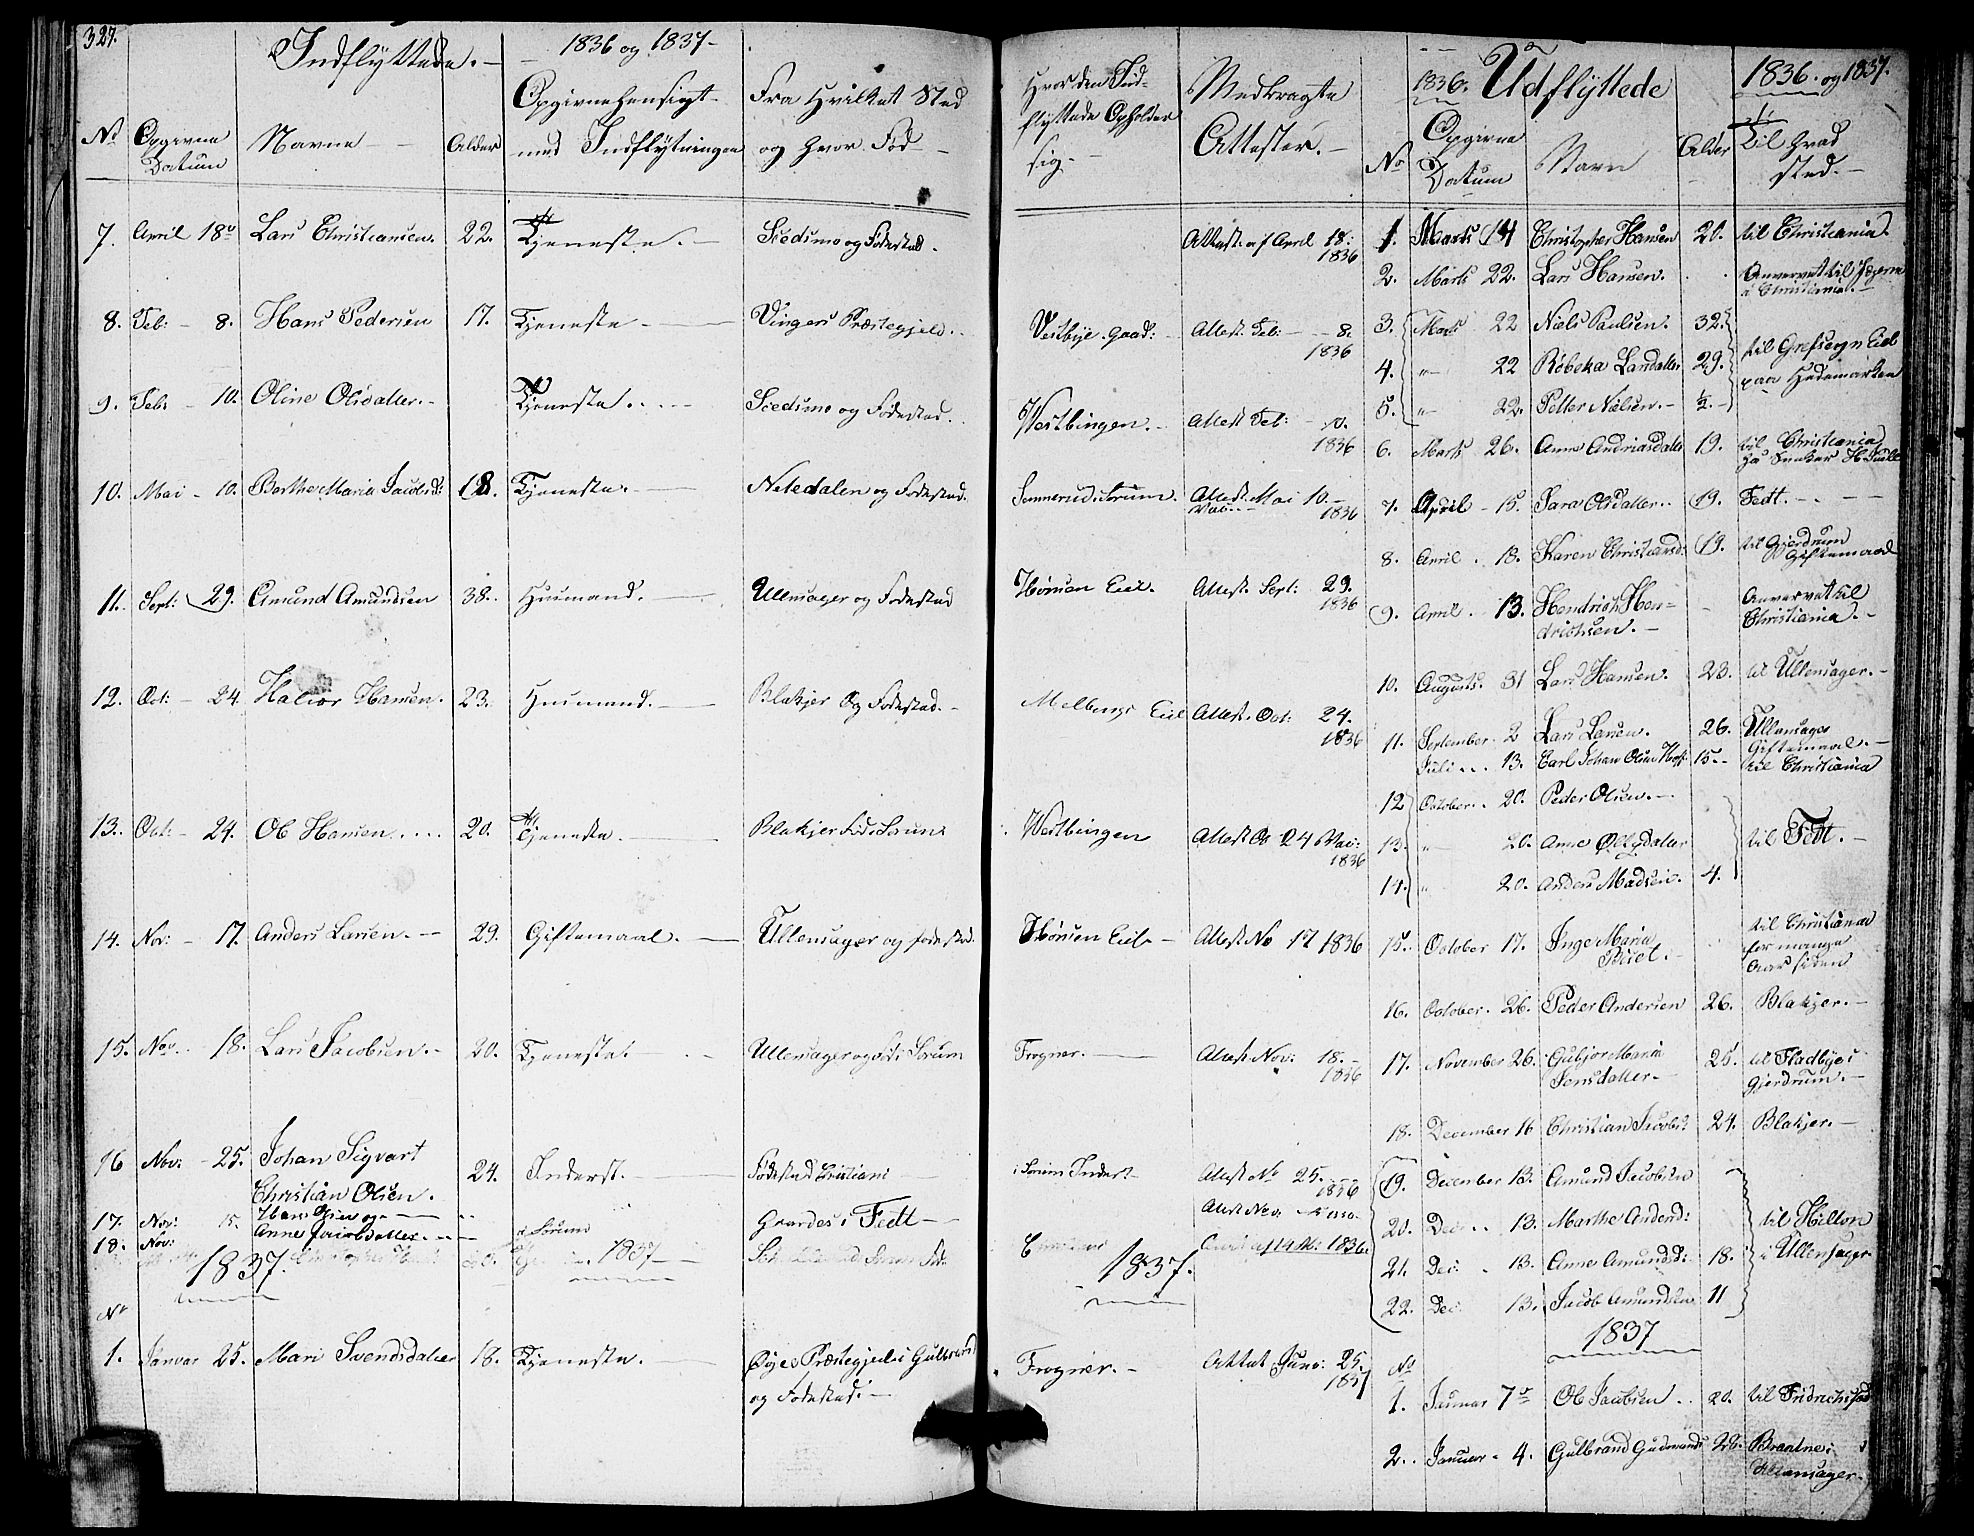 327.
Indflyttede. — 1836 og 1837 —
No Opgivne Datum Navne — Alder Opgivne Hensigt med Indflytningen Fra Hvilket Sted og Hvor Fød —
7. April 18de Lars Christiansen. 22. Tjeneste. — Scedsmo og Fødested.
8. Feb: — 8. Hans Pedersen 17. Tjeneste — Vingers Præstegjeld.
9. Feb: — 10. Oline Olsdatter. — Tjeneste. — Scedsmo og Fødested.
10. Mai — 10. Berthe Maria Jacobsd: 18. Tjeneste. — Netedalen og Fødested.
11. Sept: 29. Amund Amundsen 38. Huusmand. — Ullensager og Fødested
12. Oct: — 24 Halvor Hansen. 23. Huusmand. — Blakjer Og Fødested. —
13. Oct: — 24. Ole Hansen 20. Tjeneste. — Blakjer Fød i Sorum
14. Nov: — 17. Anders Larsen. — 29. Giftemaal. — Ullensager og fødested.
15. Nov. 18. Lars Jacobsen. — 20. Tjeneste. — Ullensager og Fød i Sorum
16 Nov: — 25. Johan Sigvart
Christian Olsen. 24. Inderst. — Fødested Cristiani
17. Nov: 15. Hans og —
18. Nov: Anne Jacobsdatter — i Sorum Gaardes i Fedt —
1837. 1837
No
1. Januar 25. Mari Svendsdatter 18. Tjeneste. — Øyes Præstegjeld i
og Fødested. —
Hvor den Indflyttede Opholder sig. — Medbragte Attester. —
Attest af April 18: 1836
Vestbye Gaad: Attest. Feb: — 8. 1836
Westbingen. — Attest Feb: — 10. 1836
Sommerud i Sorum. Attest. Mai 10. — 1836
Hørsen Eiel. Attest. Sept: 29. 1836
Melbyes Eiel Attest. Oct: 24. 1836
Westbingen Attest Oc 24 1836
Hørsen Eiel — Attest No 17 1836
Frogner. — Attest. Nov: 18. — 1836
i Sorum Inderst Attest No 25. 1836
Attest Nov.
af 14 1836.
1837.
Frogner. — Attest 25. 1837
1836. Udflyttede 1836. og 1837.
No Opgivne Datum Navn Alder Til Hvad sted. —
1. Marts 14 Christopher Hansen 20. til Christiania.
2. Marts 22. Lars Hansen. Anvervet til Jægerne
i Christiania. —
3. Marts 22 Niels Paulsen. 32.
4. " 22 Rebeka Larsdatter 29. til Grefsegn Eiel
paa Hedemarken
5. " 22. Petter Nielsen. — ½. —
6. Marts 26. Anne Andriasdatter 19. til Christiania
7. April — 15. Sara Olsdatter. 19. Fedt. —
8. April . 13. Karen Christiansd: 19. til Gjerdrum
Giftemaal
9. April . 13. Hendrich Hen-
drichsen. — Anvervet til
Christiania. —
10. Augusts. 31 Lars Hansen. 23. til Ullensager. —
11. September 2 Lars Larsen. 26. Ullensager
Giftemaal. —
Juli 13. Carl Johan Olsen Hoff 15. — til Christiania
12 October. 20. Peder Olsen. —
13. " 20. Anne Olsdatter til Fedt. —
14. " 20. Anders Madsen. 4.
15. October 17. Inge Maria
Buel. — til Christiania
for mange
Aar siden
16. October. 26. Peder Andersen 26. Blakjer. —
17. November 26. Gubjor Maria
Jensdatter — 25. til Fladbye i
Gjerdrum. —
18. December 16 Christian Jacobs: 24. Blakjer. —
19. December 13. Amund Jacobsen
20. Dec 13. Marthe Andersd: til Hilton
21. Dec. 13. Anne Amundsd: 18. i Ullensager
22. Dec. 13. Jacob Amundsen 11
1837
No
1. Januar 7de Ole Jacobsen. 20. til Fridrichstad
2. Januar 4. Gulbrand Gudmunds 28. Braatne i
Ullensager. —